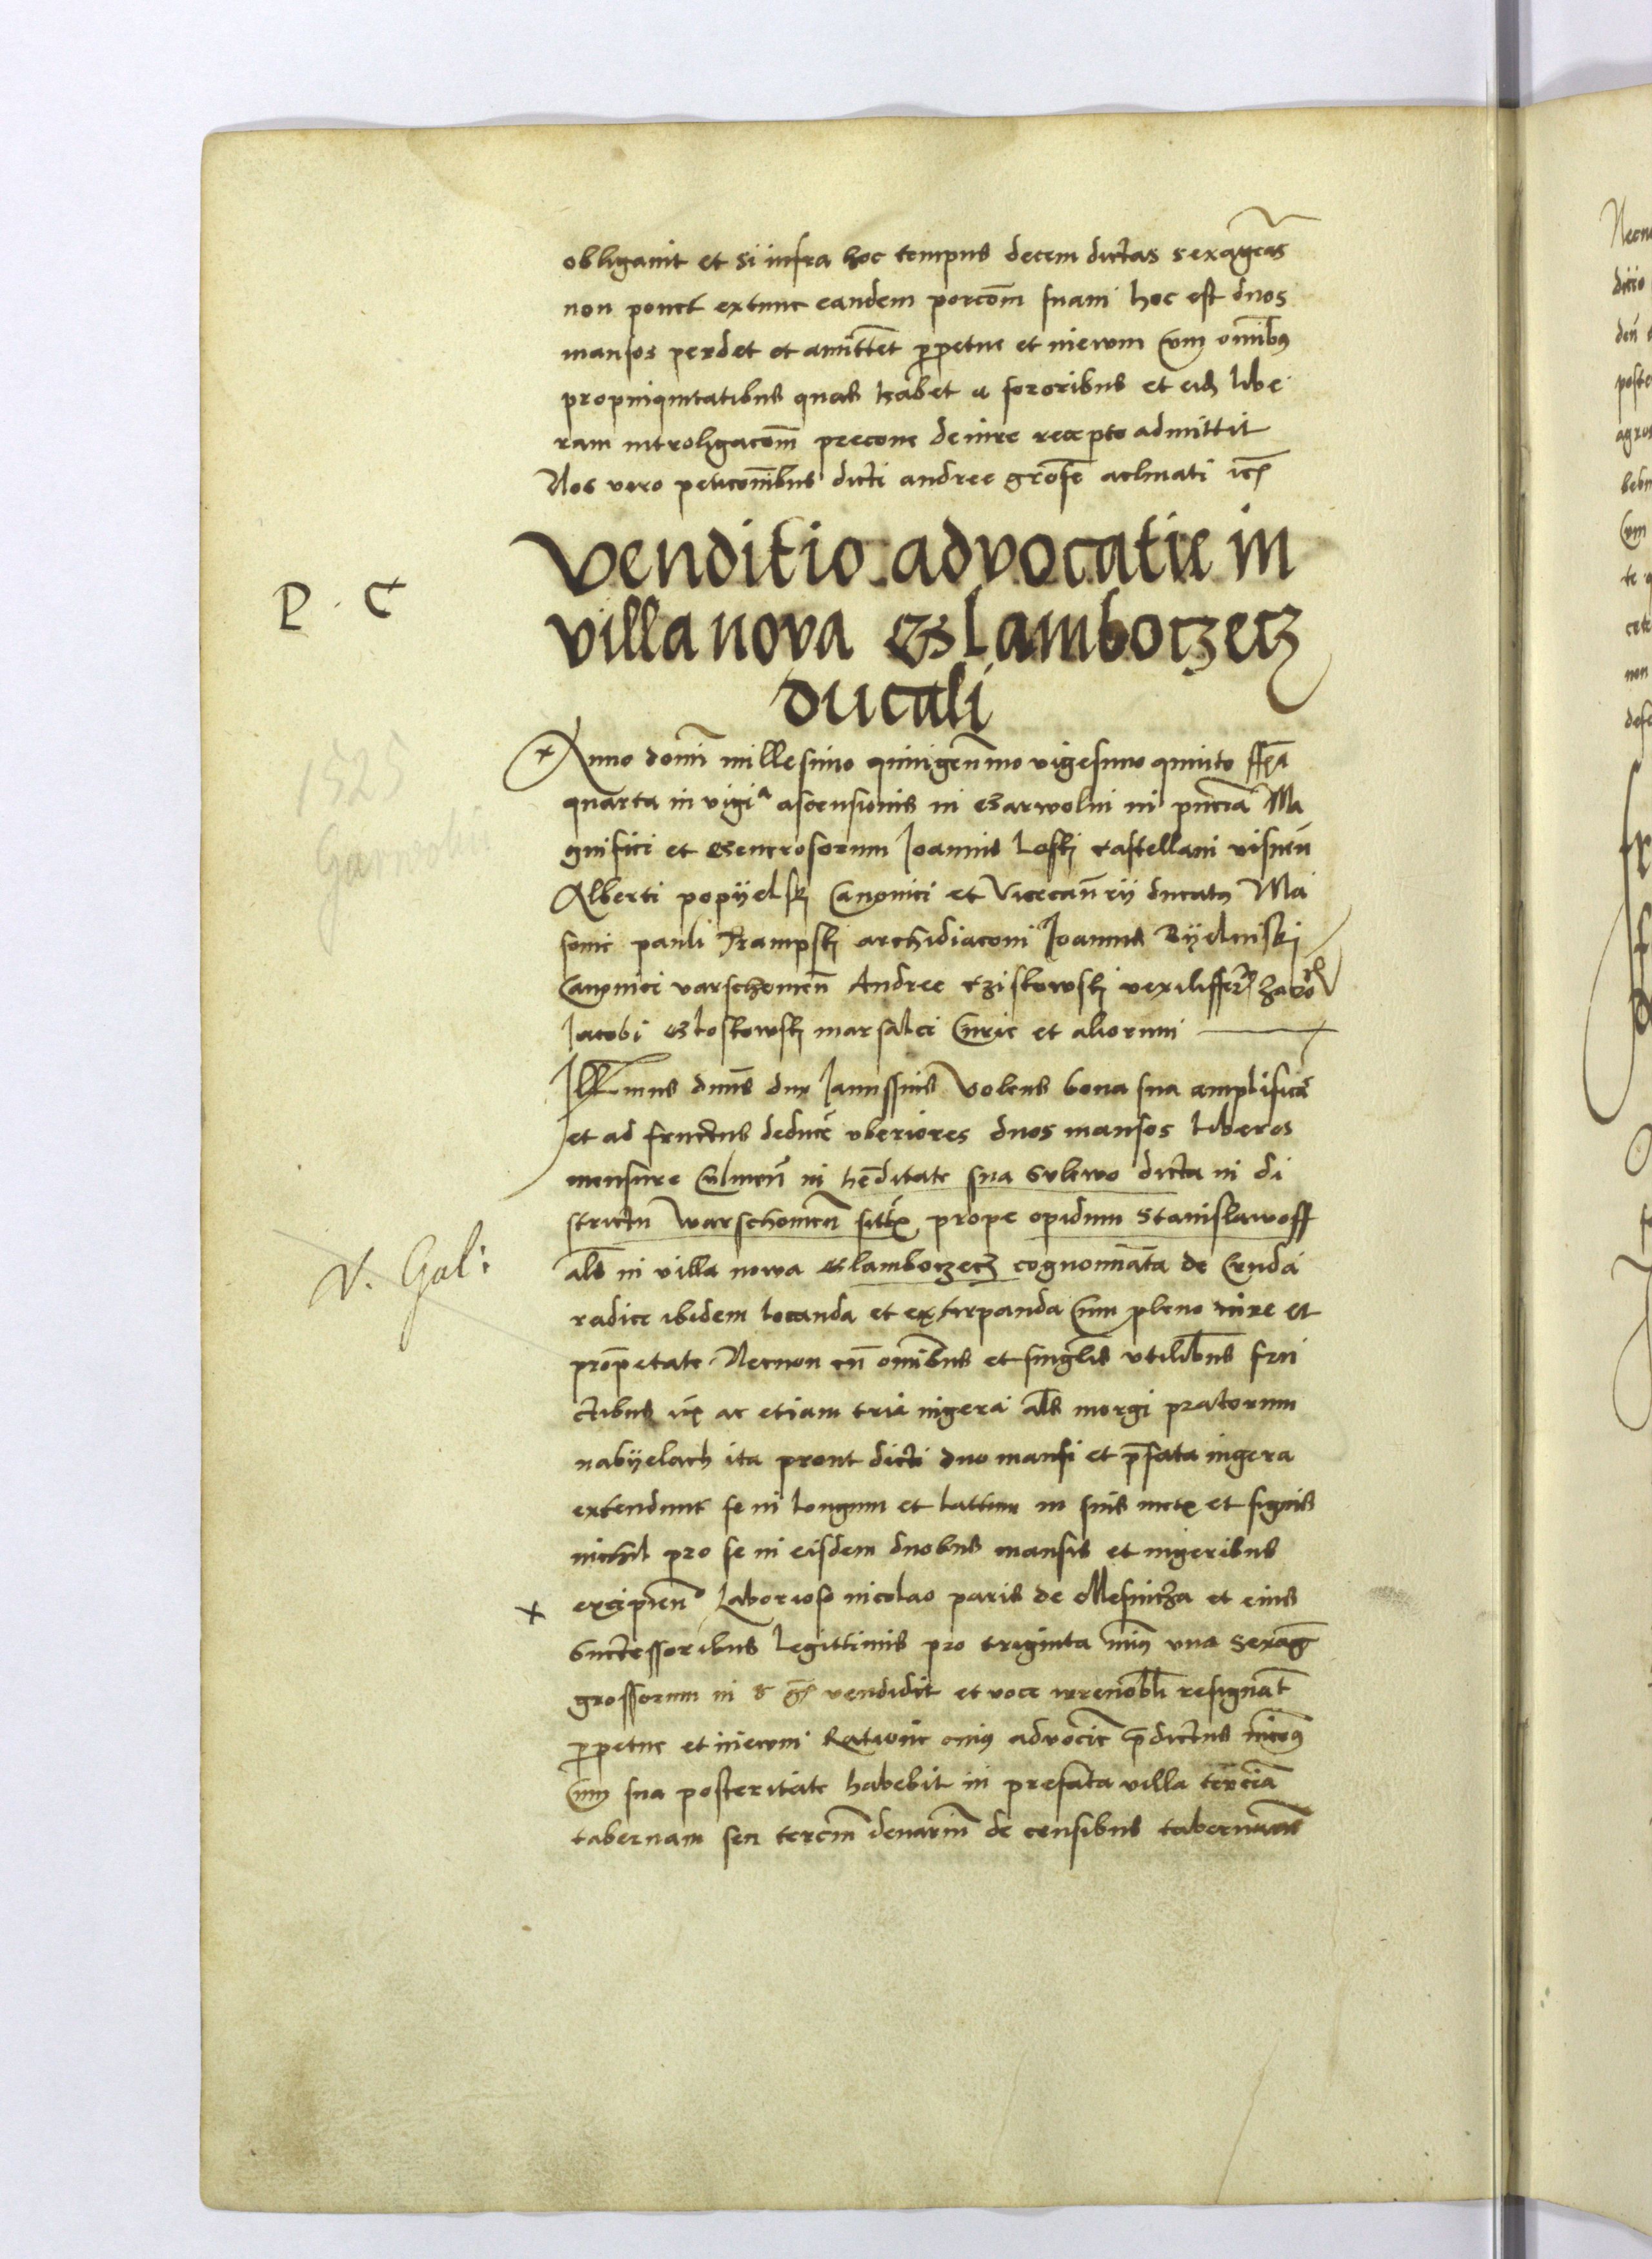 obligavit et si infra hoc tempus decem dictas sexagenas
non ponet extunc eandem porcom suam hoc est duos
mansos perdet et amittet ppetue et in ewm cum omibus
propinquitatibus quas habet a sororibus et eid libe
ram introligacom precone de iure recepto admittit
Nos vero peticonibus dicti andree grose aclinati ic
Venditio advocatie in
villa nova Glamboczecz
ducali
P. C
Anno domi millesimo quingenmo vigesimo quinto ffa
quarta in vigia ascensionis in Garwolin in pncia Ma
gnifici et Generosorum Joannis Loski castellani visnen
1525
Garwolin
Alberti popyelski Canonici et Vicecanrii ducatus Ma
sovie pauli Trampski archidiaconi Joannis Byelinski
Canonici varschovien Andree czistowski vexilifferi zacro
Jacobi Gloskowski marsalci Curie et aliorum
Illmus dnus dux Janussius Volens bona sua amplificare
et ad fructus deducere uberiores duos mansos liberos
mensure Culmen in hereditate sua Gulewo dicta in di
strictu Warschovien sitis prope opidum Stanislawoff
V. Gal:
als in villa nowa Glamboczecz cognominata de Cruda
radice ibidem locanda et extirpanda Cum pleno iure et
proprietate Necnon cum omibus et singlis utilibus fru
ctibus ac etiam tria iugera als morgi pratorum
nabyelach ita prout dicti duo mansi et pfata iugera
extendunt se in longum et lattum in suis metis et signis
nichil pro se in eisdem duobus mansis et iugeribus
+ excipien Laborioso nicolao paris de Mesnicza et eius
Successoribus legittimis pro triginta minus una sexag
grossorum in vendidit et voce irrevobli resignat
ppetue et in ewm Ratione cuius advocie pdictus nicos
Cum sua posteritate habebit in prefata villa terciam
tabernam seu tercm denarium de censibus tabernarum